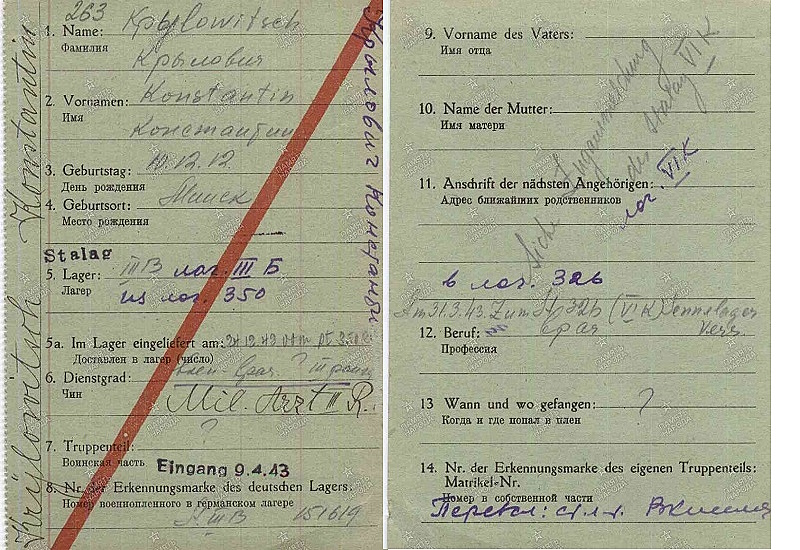 263
1. Name: Krylowitsch
Фамилия
Крылович
2. Vornamen: Konstantin
Имя
Константин
3. Geburtstag: 10.12.12
День рождения
4. Geburtsort: Минск
Место рождения
Stalag
5. Lager: III B лаг. III Б
Лагерь
из лаг. 350
5a. Im Lager eingeliefert am:
Доставлен в лагерь (число)
6. Dienstgrad:
Чин
Mil. Arzt III R.
7. Truppenteil: ?
Воинская часть
Eingang 9.4.43
8. Nr. der Erkennungsmarke des deutschen Lagers:
Номер военнопленного в германском лагере
III B 151619
Krylowitsch Konstantin
Крылович Константин
9. Vorname des Vaters:
Имя отца
10. Name der Mutter:
Имя матери
11. Anschrift der nächsten Angehörigen:
Адрес ближайших родственников
Sieh
des Stalag VI K
лаг VI K
в лаг. 326
Am 31.3.43. Zum 326 (VI K) Sennelager
12. Beruf: врач
Профессия
13 Wann und wo gefangen: ?
Когда и где попал в плен
14. Nr. der Erkennungsmarke des eigenen Truppenteils:
Matrikel-Nr.
Номер в собственной части
Перевел: